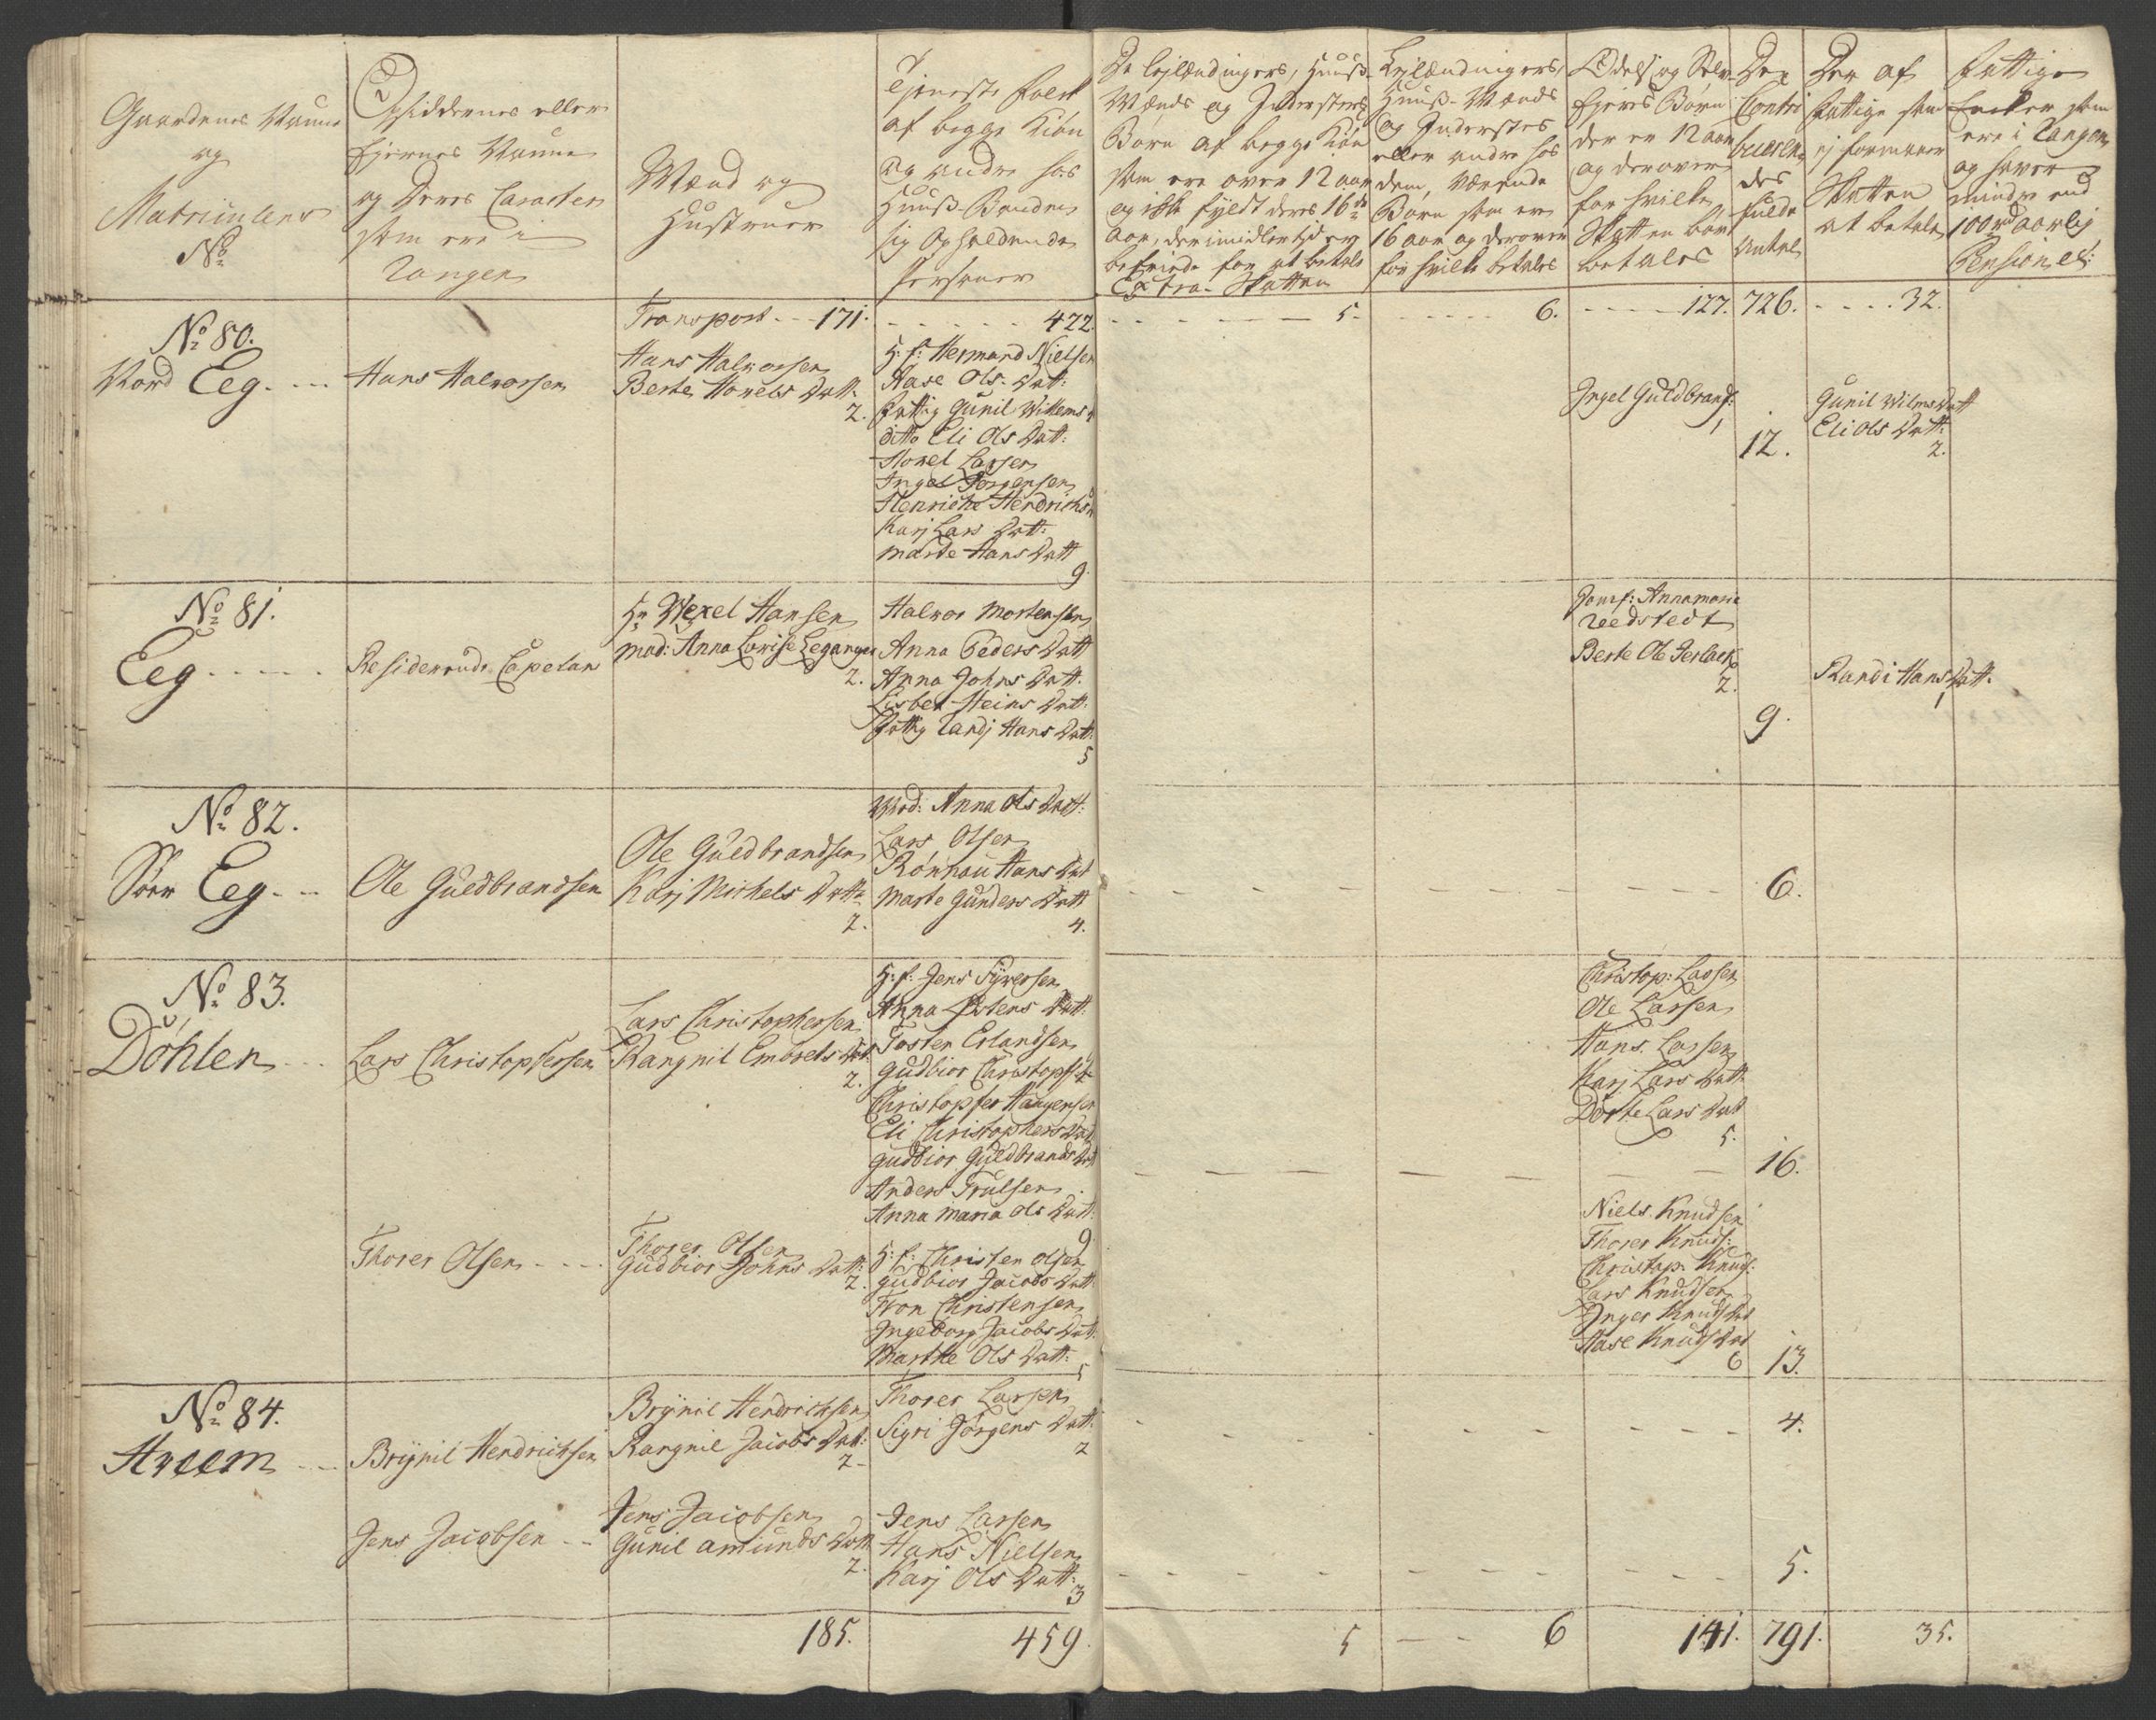 Gaardenes Navne
og
Matriculens
No
Opsiddernes eller
Ejernes Navne
og Deres Caracter
som ere i
Rangen
Mænd og
Hustruer
Tjeneste Folk
af begge Kiøn
og andre hos
Huus-Bonden
sig Opholdende
Personer
De Lejlændingers, Huus-
Mænds og Inderster
Børn af begge Kiøn
som ere over 12 aar
og ikke fyldt deres 16de
Aar, der imidlertid er
befriede for at betale
Extra-Skatten
Lejlændingers,
Huus-Mænds
og Inderstes
eller andre hos
dem, værende
Børn som er
16 aar og derover
for hvilke betales
Odels og Selv-
Ejeres Børn
der er 12 aar
og derover
for hvilke
Skatten bør
betales
Det
Contri-
buerendes
fulde
Antal
Der af
fattige som
ej formaaer
Skatten
at betale
Fattige
Enker som
ere i Rangen
og haver
mindre end
100 rd aarlig
Pension etc:
Transport - - 171. - - - - - 422. - - - - - 5. - - - - - 6. - - - - 127. 726. - - - - 32.
No 80.
Nord Eeg. - - -
Hans Halvorsen
Hans Halvorsen
Berte Hovels Datt:
2.
H: f: Hermand Nielsen
Aase Ols- Datt:
Fattig Gunil Willems D
ditto Eli Ols Datt:
Hovel Larsen
Ingel Jørgensen
Henriche Hendrichs D
Karj Lars Datt:
Marte Hans Datt
9.
Ingel Guldbrands:
1
12.
Gunil Wilms Datt
Eli Ols Datt:
2.
No 81.
Eeg - - - - -
Residerende Capelan
Hr Wexel Hansen
Mad: Anna Lovise Leganger
2.
Halvor Mortensen
Anna Peders Datt
Anna Johns Datt.
Lisbet Steins Datt:
Fattig Randj Hans Datt:
5
Jomf: Annamaria
Veedstedt
Berte Ole Gerlach
2.
9.
Randi Hans Datt.
1
No 82.
Söer Eeg. - -
Ole Guldbrandsen
Ole Guldbrandsen
Karj Michels Datt:
2.
Mod: Anna Ols Datt:
Lars Olsen
Rønnau Hans Dat
Marte Gunders Datt
4.
6.
No 83.
Döhlen - - -
Lars Christophersen
Lars Christophersen
Rangnil Embrets Datt
2.
H: f: Jens Syversen
Anna Østens Datt:
Tosten Erlandsen
Gudbior Christophs D
Christopher Haagensen
Eli Christophers Dat:
Gudbior Guldbrands Dat
Anders Trulsen
Anna Maria Ols Datt:
9
Christop: Larsen
Ole Larsen
Hans Larsen
Karj Lars Datt:
Dorte Lars Dat
5.
16.
Thorer Olsen - - - -
Thorer Olsen
Gudbior Johns Datt:
2.
H: f: Christen Olsen
Gudbior Jacobs Datt
Tron Christensen
Ingeborg Jacobs Dat:
Marthe Ols Datt:
5
Niels Knudsen
Thorer Knuds:
Christop: Knuds:
Lars Knudsen
Inger Knuds Dat
Aase Knuds Dat
6
13.
No 84.
Hveem - - -
Brynil Hendrichsen
Brynil Hendrichsen
Rangnil Jacobs Datt:
2-
Thorer Larsen
Sigri Jørgens Datt:
2
4.
Jens Jacobsen - -
Jens Jacobsen
Gunil Amunds Datt
2.
Jens Larsen
Hans Nielsen
Karj Ols Datt:
3
5.
185. 459. 5 - - - 6 141. 791. 35.